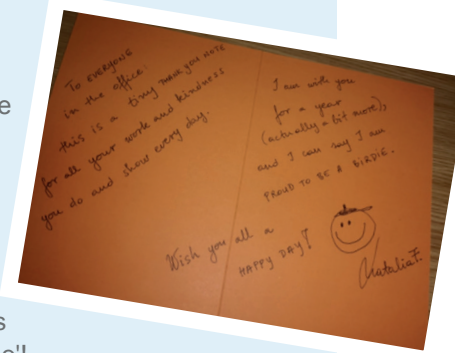 e
To everyone
in the office:
this is a tiny THANK YOU NOTE
for all your work and kindness
you do and show every day.
I am with you
for a year
(actually a bit more),
and I can say I am
PROUD TO BE A BIRDIE.
Wish you all a
HAPPY DAY!
Natalia F.
s
e'!